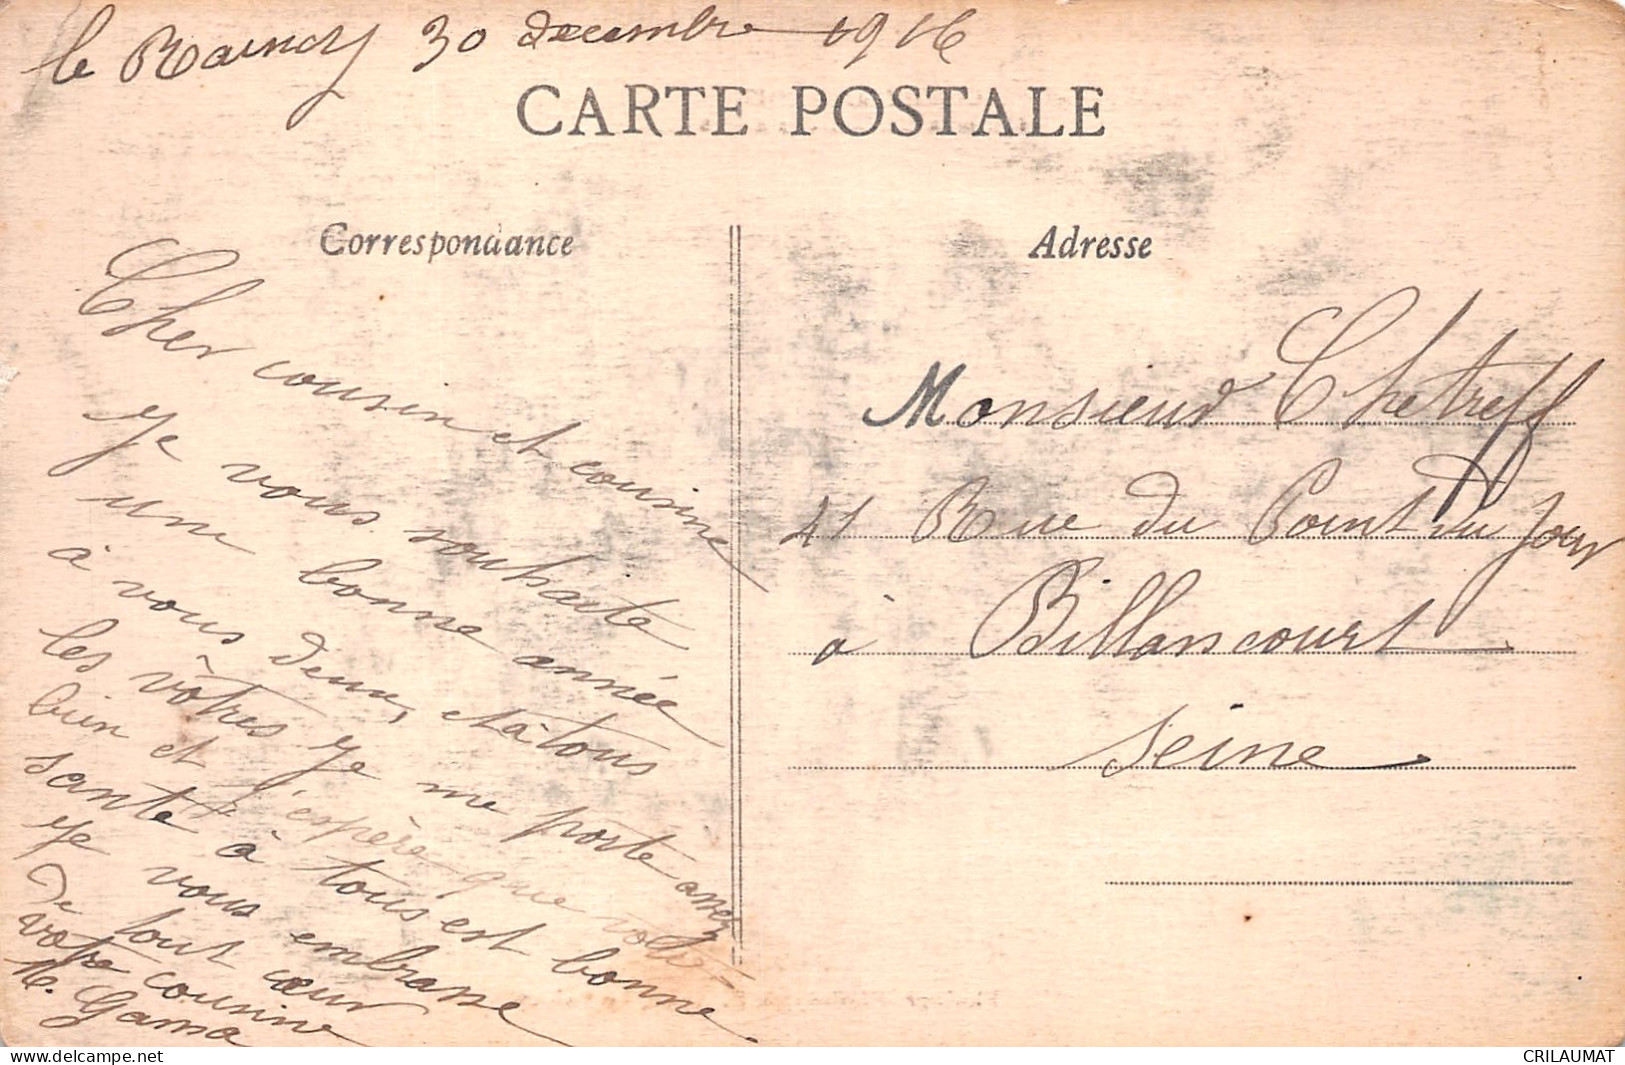 le Raincy 30 decembre 1916
CARTE POSTALE
Correspondance
Cher cousin et cousine
Je vous souhaite
une bonne année
à vous deux, et à tous
les vôtres Je me porte assez
bien et j'espère que votre
santé à tous est bonne
Je vous embrasse
de tout cœur
votre cousine
Adresse
Monsieur Chetreff
41 Rue du Point du Jour
à Billancourt
Seine
CRILAUMAT